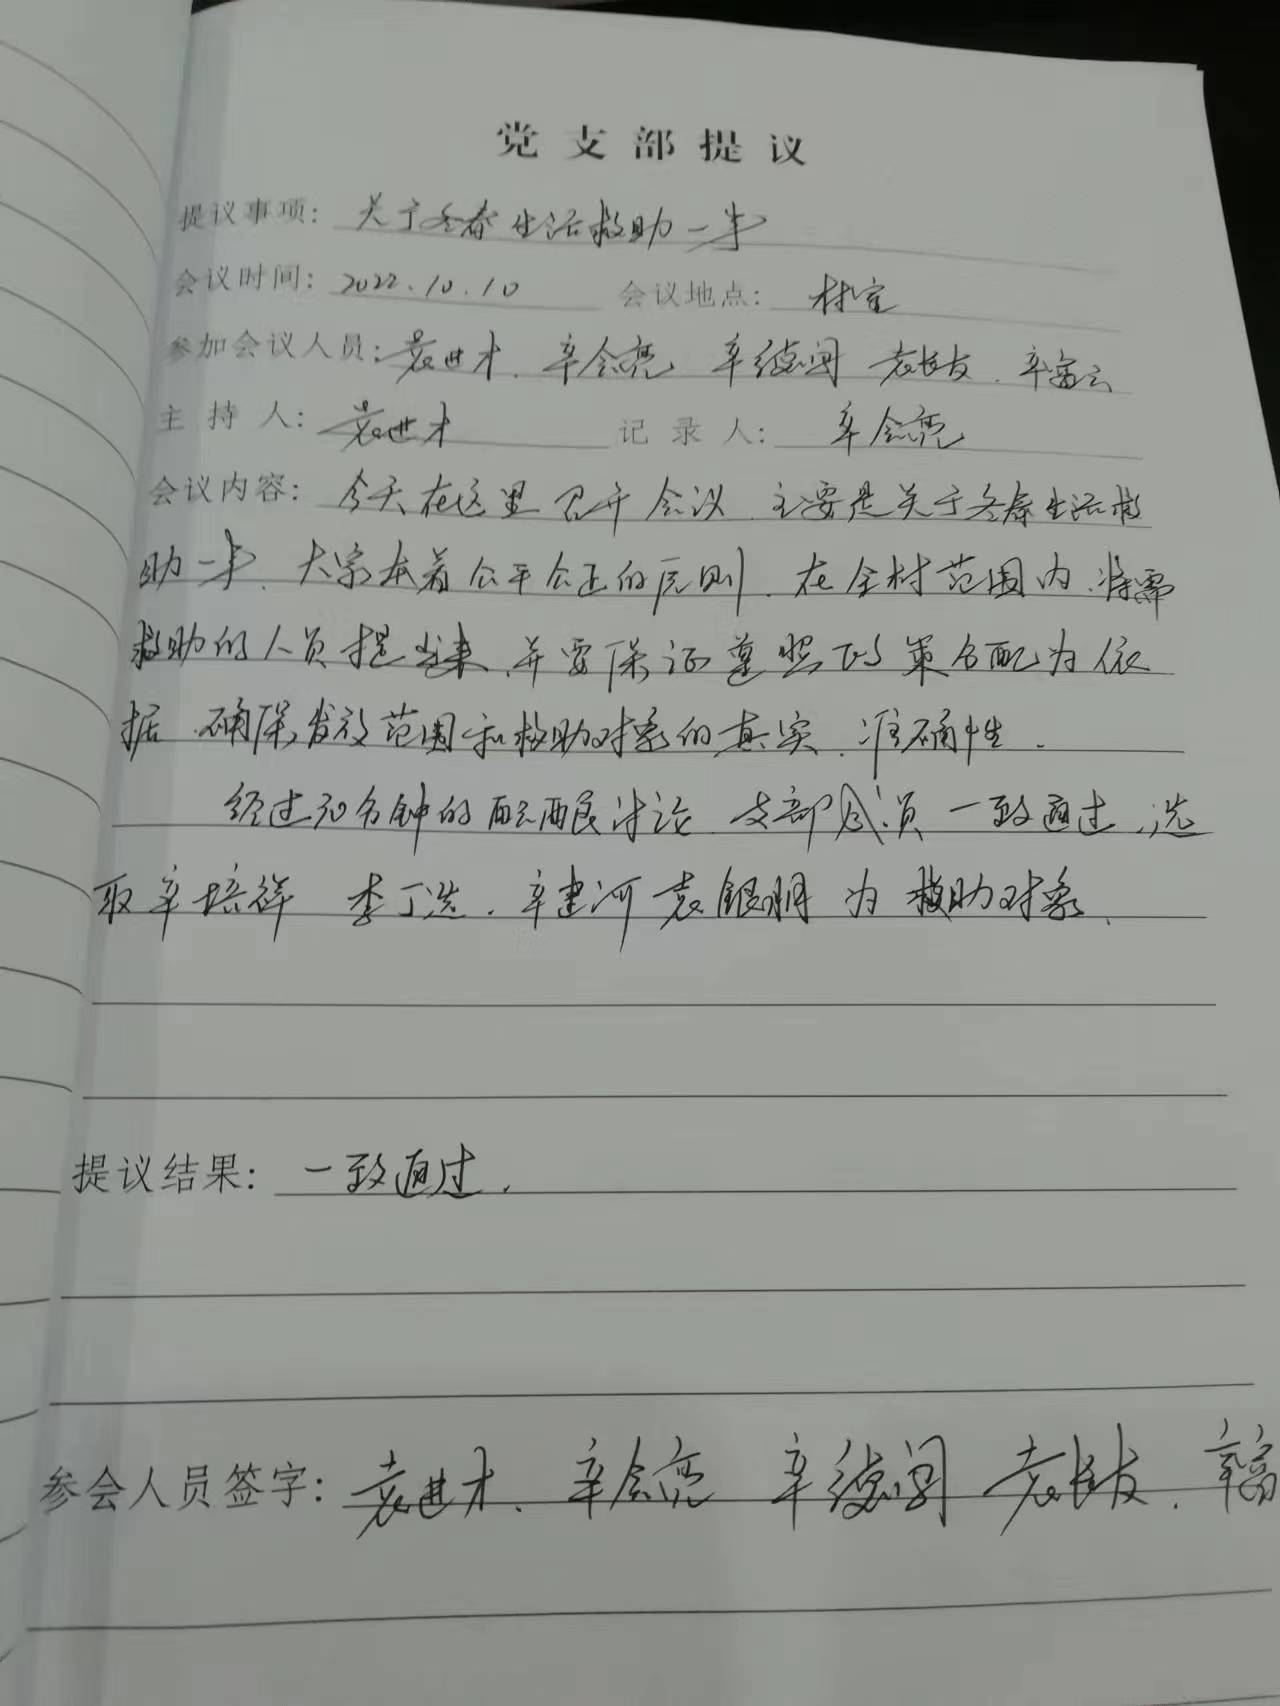 党支部提议
提议事项: 关于冬春生活救助一事
会议时间: 2022.10.10 会议地点: 村室
参加会议人员: 袁世才. 辛会亮 辛德闯 袁长友. 辛富云
主持人: 袁世才 记录人: 辛会亮
会议内容: 今天在这里召开会议, 主要是关于冬春生活救
助一事. 大家本着公平公正的原则. 在全村范围内, 将需
救助的人员提出来, 并要保证遵照政策分配为依
据. 确保发放范围和救助对象的真实. 准确性.
经过30分钟的酝酿讨论. 支部成员一致通过, 选
取辛培祥 李丁选. 辛建河 袁银明为救助对象.
提议结果: 一致通过.
参会人员签字: 袁世才. 辛会亮 辛德闯 袁长友. 辛富